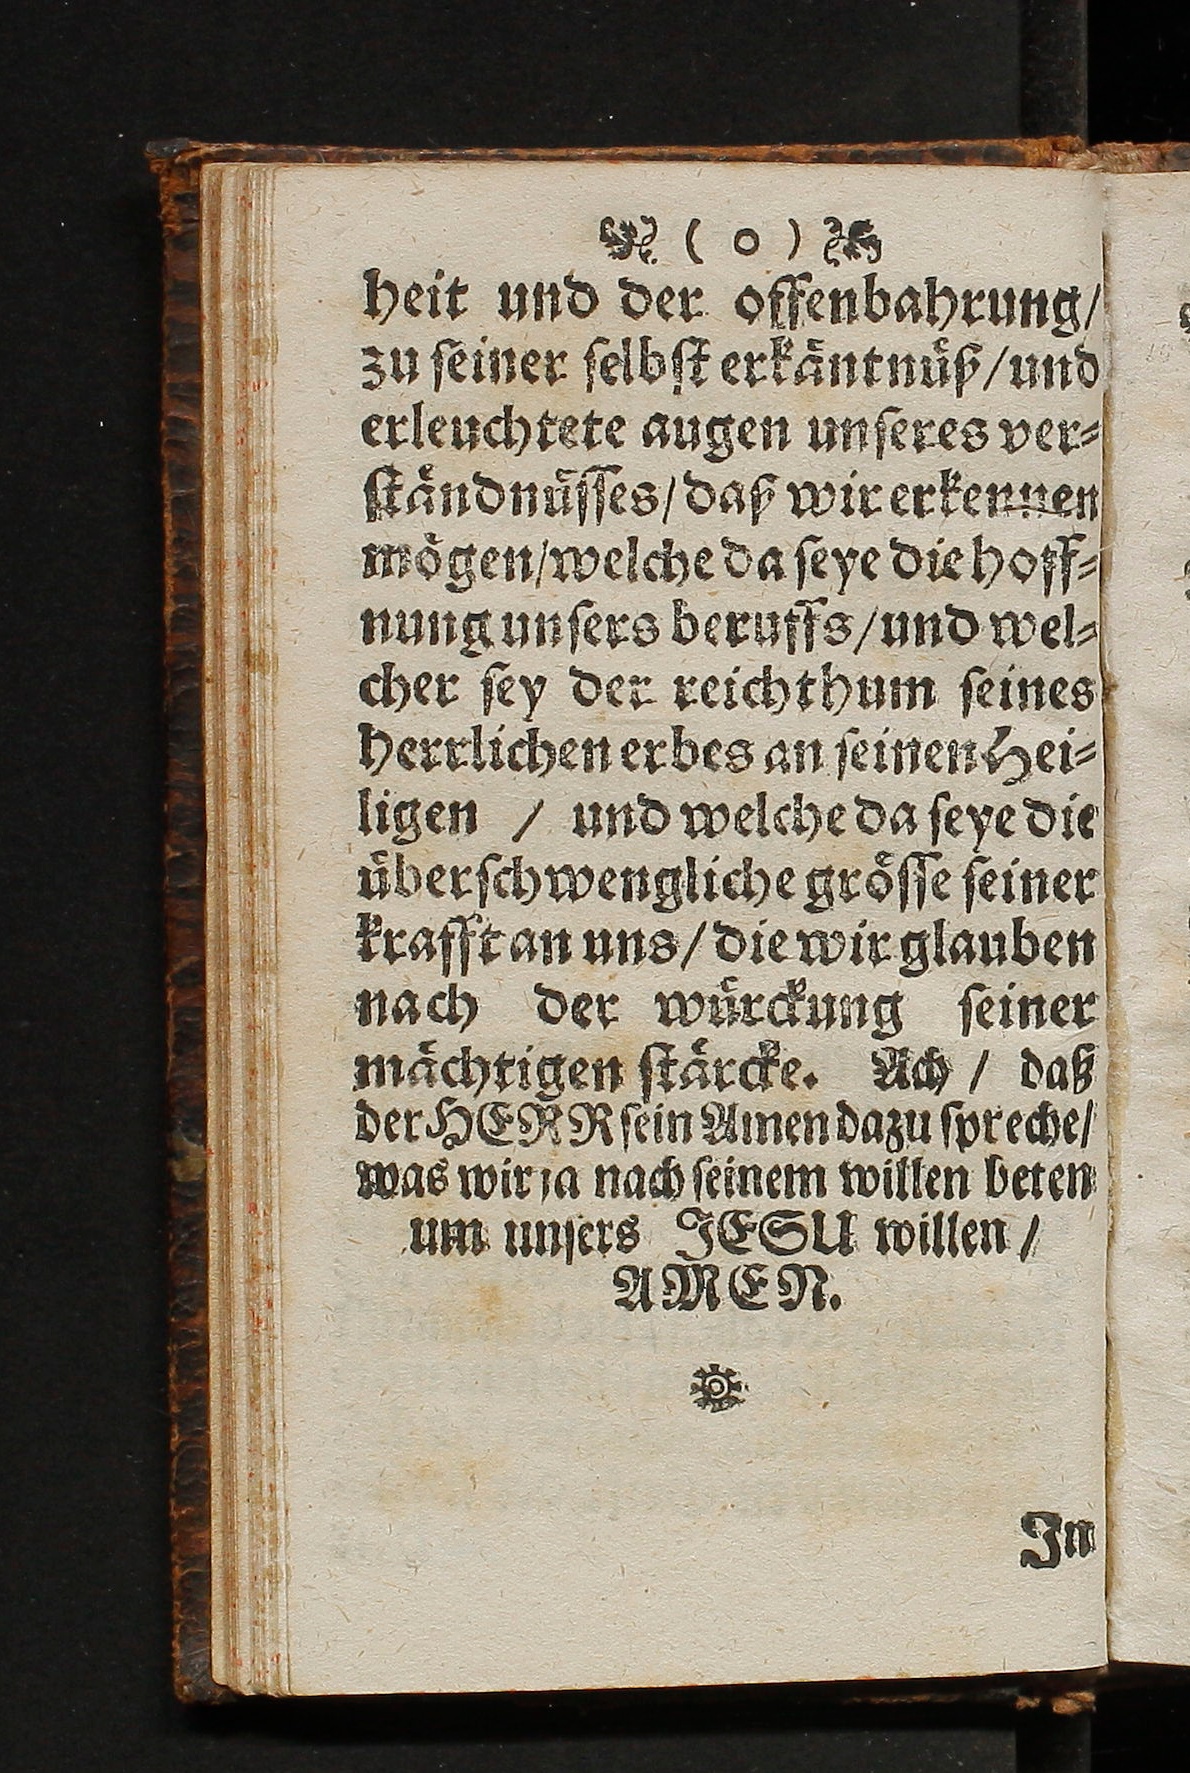 ( o )
heit und der offenbahrung/
zu seiner selbst erkäntnüß/und
erleuchtete augen unseres ver⸗
ständnüsses/daß wir erkennen
mögen/welche da seye die hoff⸗
nung unsers beruffs/und wel⸗
cher sey der reichthum seines
herrlichen erbes an seinen Hei⸗
ligen / und welche da seye die
überschwengliche grösse seiner
krafft an uns/die wir glauben
nach der würckung seiner
mächtigen stärcke. Ach / daß
der HERR sein Amen dazu spreche/
was wir ja nach seinem willen beten
um unsers JESU willen /
AMEN.
Im